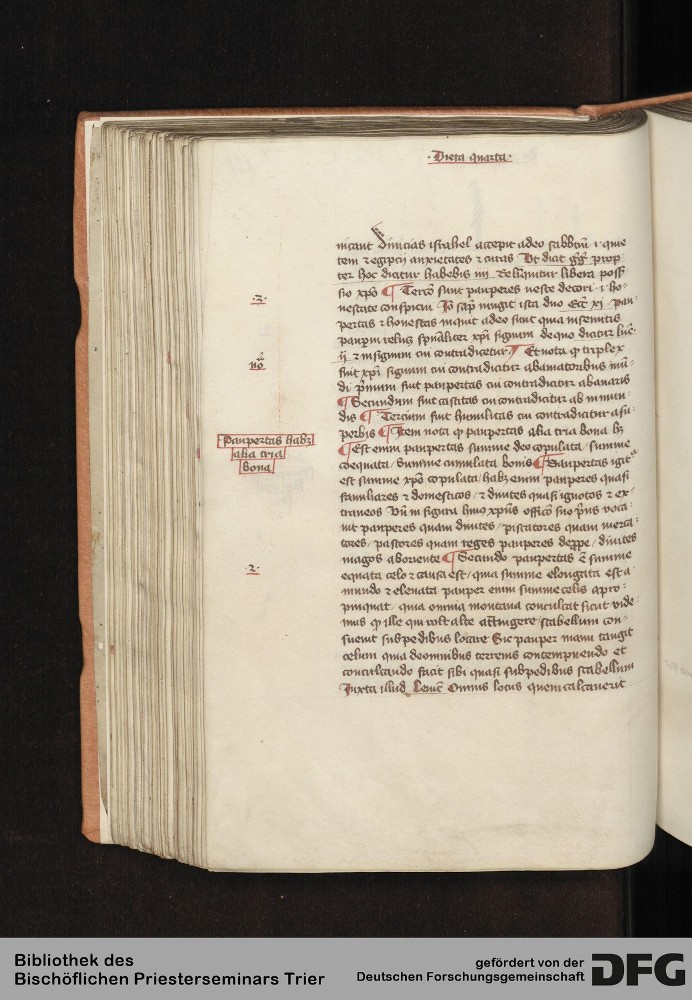 ·Dieta quarta·
nicaut Diuicias israhel accepit adeo sabbtū .i. quie
tem z egipcii anxietates z curas Vt dicit g̅g̅ prop-
ter hoc dicitur habebis Relinquitur libera poss
sio xpō ¶ Terco sunt pauperes veste decori .i. ho-
nestate conspicui ista duo Ecc xi pau-
pertas z honestas inquit adeo sunt quia
signum de quo dicitur luc
ij z in signum cui contradicetur ¶ Et nota q̨ triplex
fuit xpi signum cui contradicitur ab amatoribus mū-
di p̄mum fuit paupertas cui contradicitur ab auaris
¶ Secundum fuit castitas cui contradicitur ab inmun-
dis ¶ Tercium fuit humilitas cui contradicitur a su-
perbis ¶ Item nota q̨ paupertas alia tria bona hȝ
¶ Est enim paupertas summe deo copulata / summe
coequata / Summe cumulata bonis ¶ Paupertas igit^r
est summe xpō copulata / habȝ enim pauperes quasi
familiares z domesticos / z diuites quasi ignotos z ex-
traneos Vn̄ in figura huiꝰ xpūs officō suo p̄us voca-
uit pauperes quam diuites / piscatores quam merca-
tores / pastores quam reges pauperes / diuites
magos ab oriente ¶ Secundo paupertas ē summe
equata celo z causa est / quia summe elongata est a
mundo z eleuata pauper enim summe celis apro-
pinquat / quia omnia montana conculcat sicut vide
mus q̨ ille qui vult alte attingere / scabellum con-
sueuit sub pedibus locare Sic pauper manu tangit
celum quia de omnibus terrenis contempnendo et
conculcando facit sibi quasi sub pedibus scabellum
Juxta illud Leuit̄ Omnis locus quem calcauerit
·3·
nō
Paupertas habȝ
alia tria
bona
·2·
Bibliothek des
Bischöflichen Priesterseminars Trier
gefördert von der
Deutschen Forschungsgemeinschaft
DFG